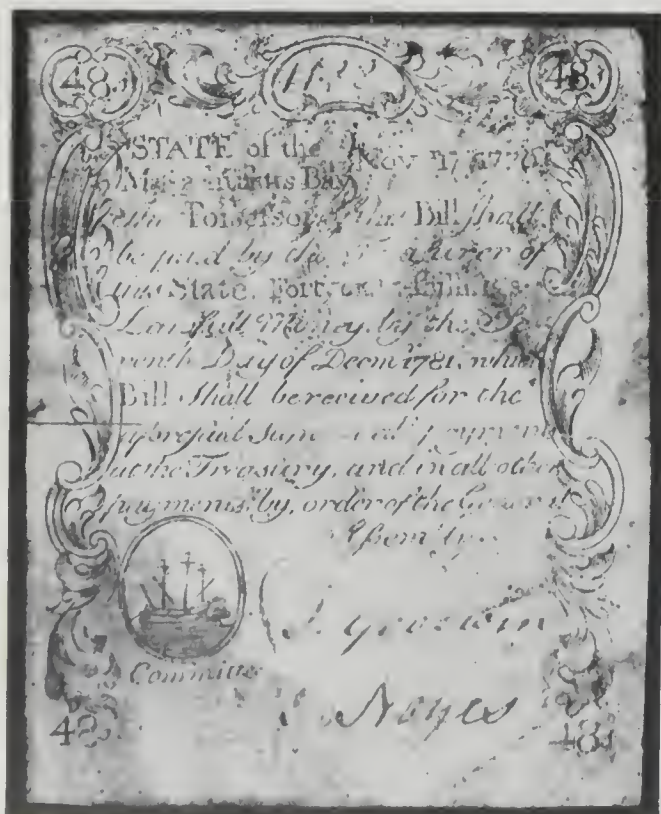 48s 48s
STATE of the Nov 17 1776
Massachusetts Bay
Possessor this Bill shall
be paid by the Treasurer of
this State, Forty shillings
Lawfull Money, by the
Day of Decm 1781, which
Bill shall be received for the
aforesaid Sum in all payments
at the Treasury, and in all other
payments, by, order of the General
Assembly.
Committee
Noyes
48s 48s